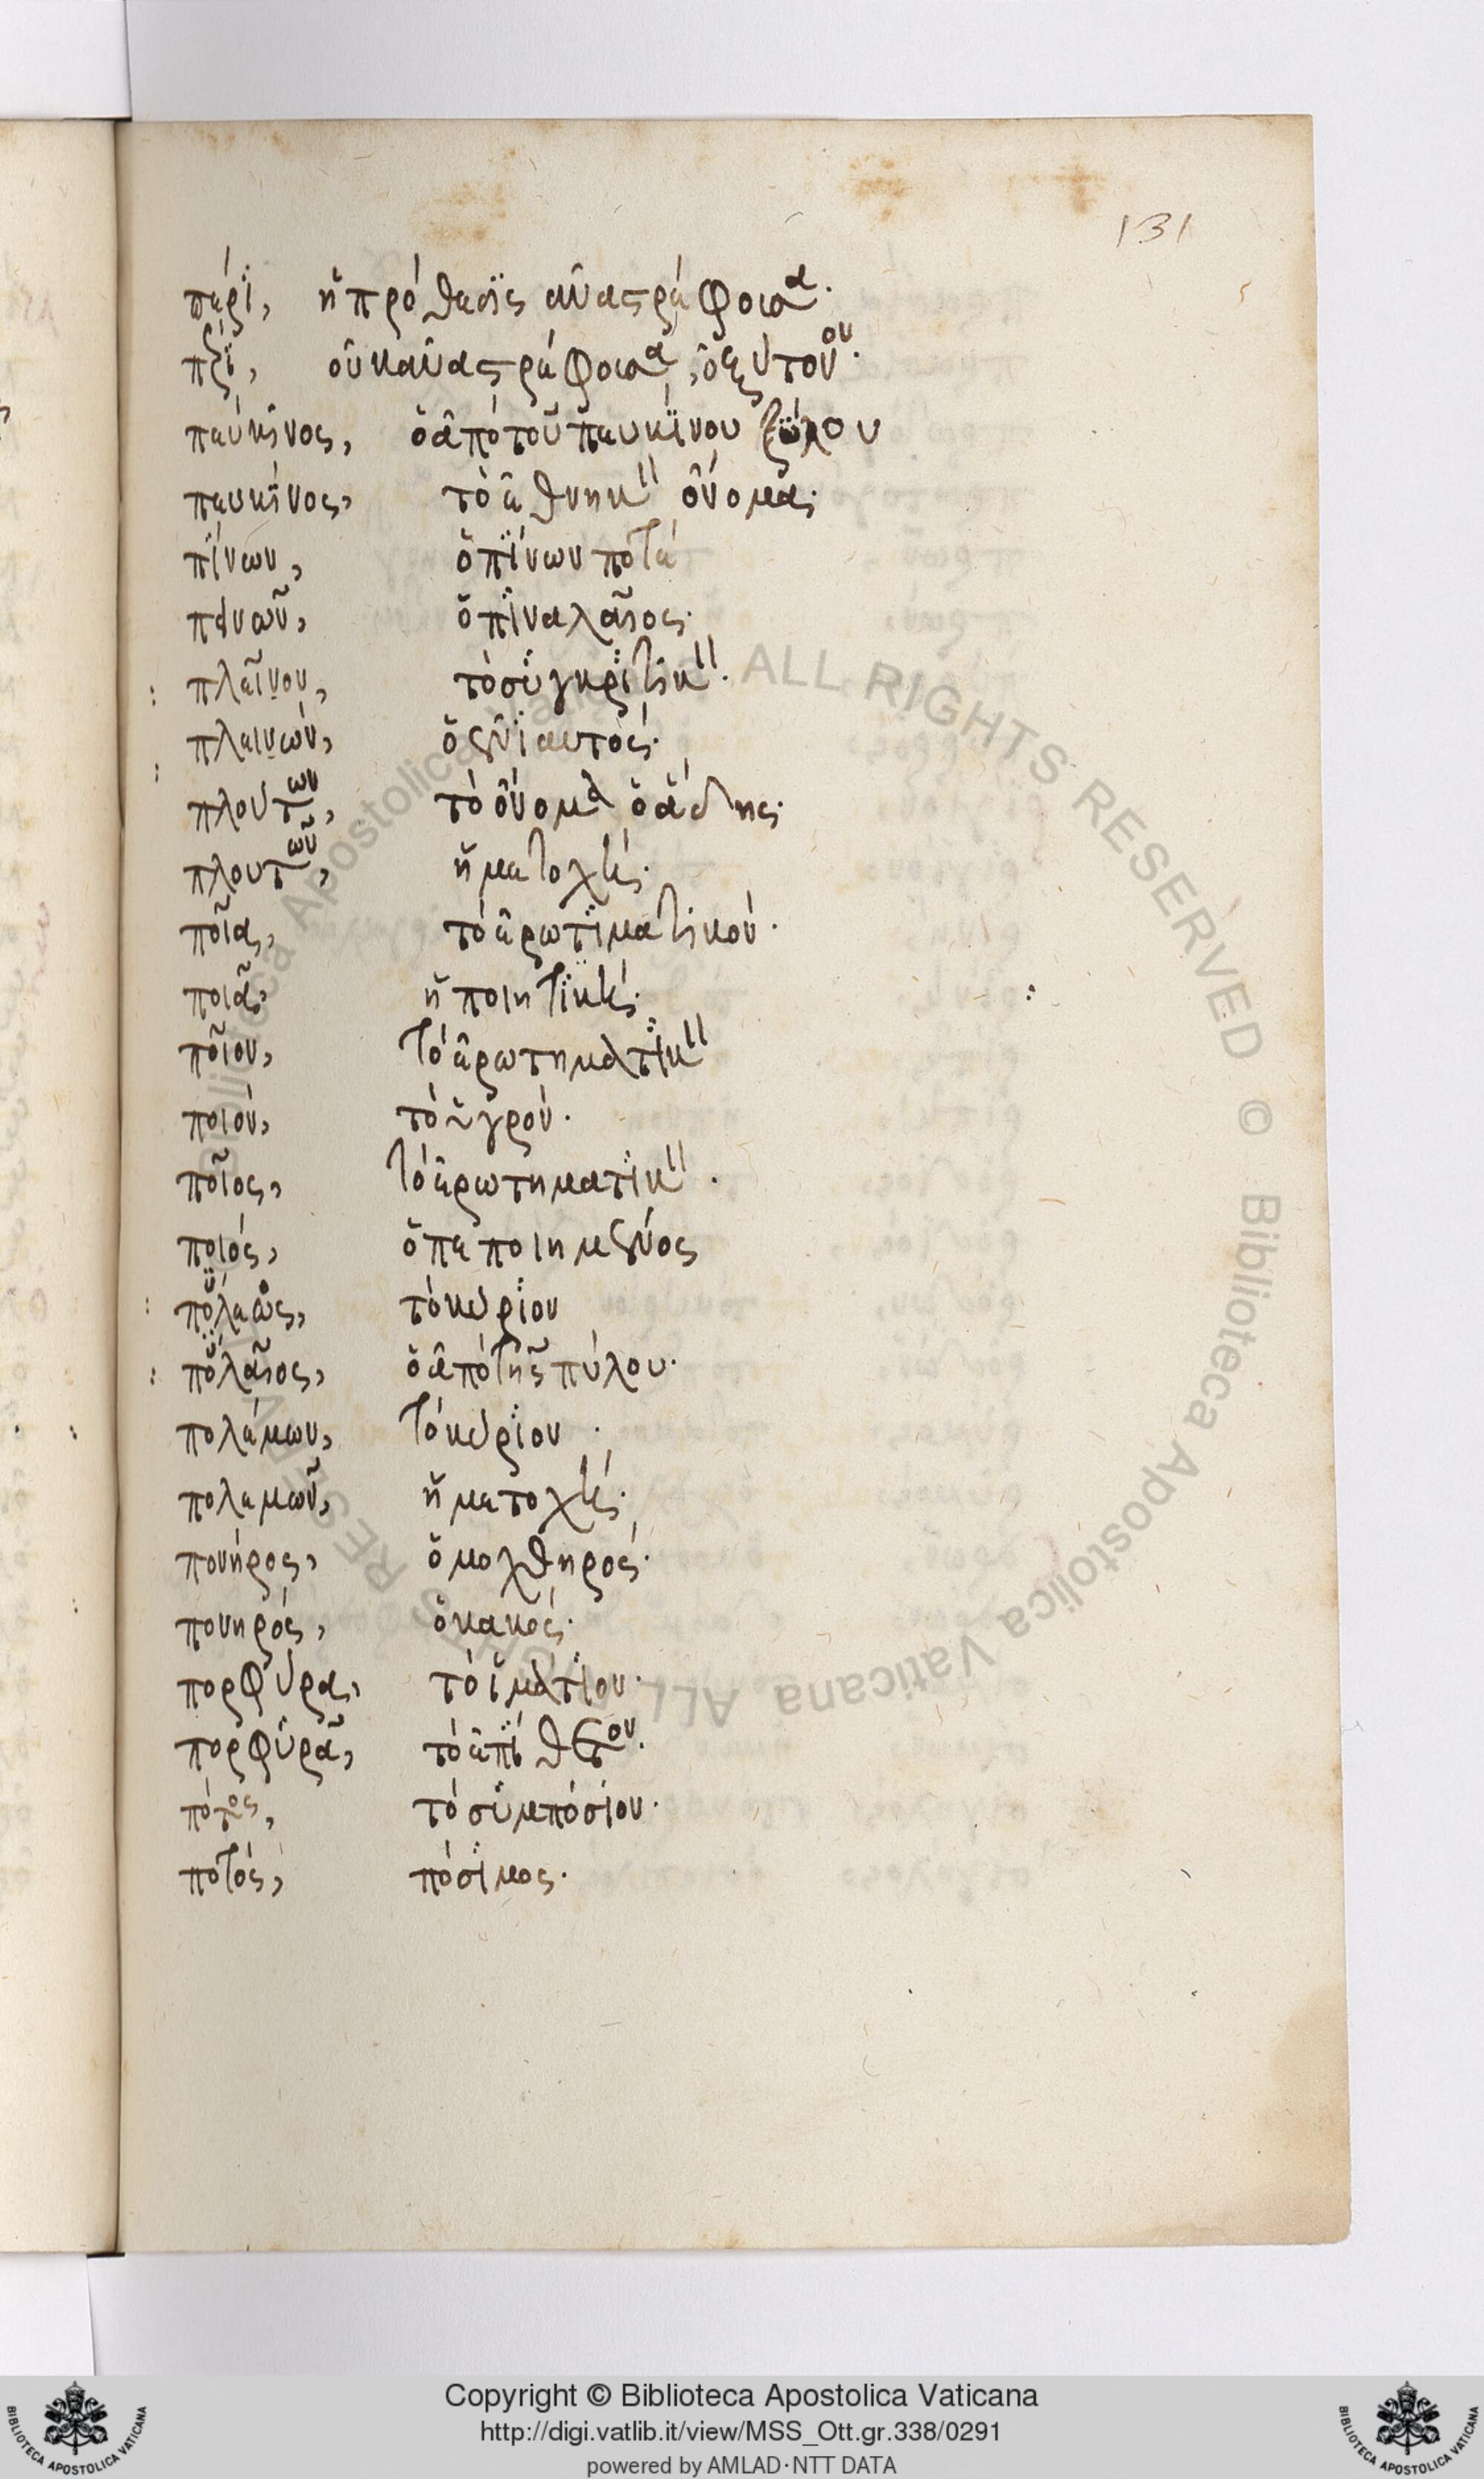 131
πέρϊ, ἡ πρόθεσϊς ἀναστρέφουσα.
περϊ, οὐκ ἀναστρέφουσα, ὀξυτονον.
πεύκινος, ὁ ἀπὸ τοῦ πευκΐνου ξύλου
πευκῖνος, τὸ ἐθνηκ ὄνομα.
πΐνων, ὁ πΐνων ποτέ
πεινῶν, ὁ πϊναλαῖος.
πλεῖνον, τὸ συγκρϊτικ.
πλεινών, ὁ ἐνϊαυτός.
πλούτων, τὸ ὄνομα ὁ ᾅδης.
πλουτῶν, ἡ μετοχή.
ποῖα, τὸ ἐρωτϊματικόν.
ποιᾶ, ἡ ποιητϊκή.
ποῖον, τὸ ἐρωτηματϊκ
ποιόν, τὸ ὑγρόν.
ποῖος, τὸ ἐρωτηματϊκ.
ποιός, ὁ πεποιημένος
πύλεως, τὸ κύρϊον
πύλαῖος, ὁ ἀπὸ τῆς πύλου.
πολέμων, τὸ κύρϊον.
πολεμῶν, ἡ μετοχή.
πονήρος, ὁ μοχθηρός.
πονηρός, ὁ κακός.
πορφύρα, τὸ ἱμάτϊον.
πορφυρᾶ, τὸ ἐπΐθετον.
πότος, τὸ συμπόσϊον.
ποτός, πόσϊμος.
Copyright © Biblioteca Apostolica Vaticana
http://digi.vatlib.it/view/MSS_Ott.gr.338/0291
powered by AMLAD·NTT DATA
BIBLIOTECA APOSTOLICA VATICANA
BIBLIOTECA APOSTOLICA VATICANA